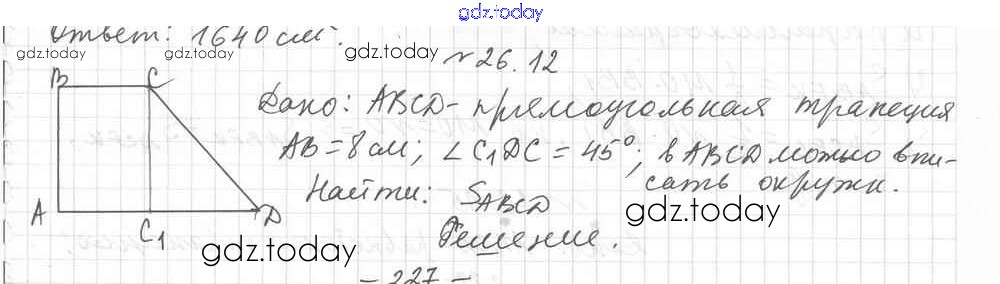 gdz.today
Ответ: 1640 см².
gdz.today gdz.today gdz.today
№ 26.12
B C
Дано: ABCD - прямоугольная трапеция
AB = 8 см; ∠C₁DC = 45°; в ABCD можно впи-
сать окружн.
Найти: S_ABCD
A C₁ D
gdz.today
Решение.
gdz.today
- 227 -